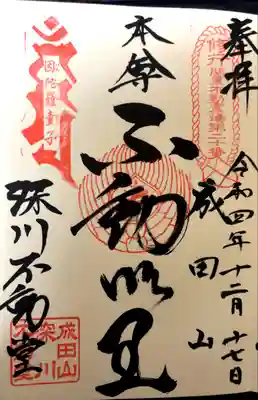 奉拝
令和四年十二月十七日
成田山
本尊
不動明王
深川不動堂
成田山
深川